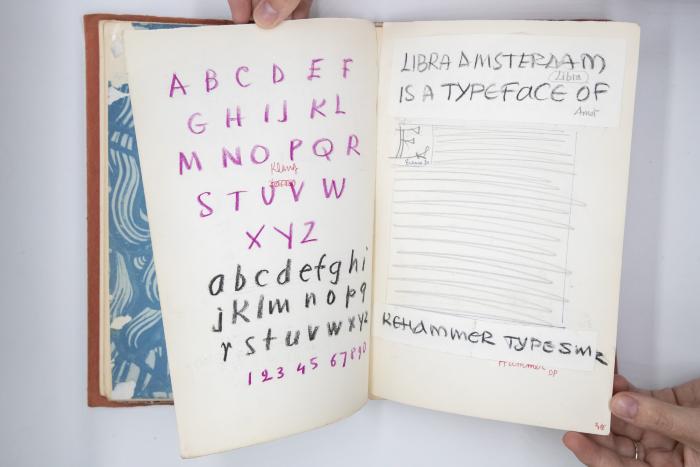 A B C D E F
G H IJ K L
M N O P Q R
Klang
S T U V W
X Y Z
a b c d e f g h i
j k l m n o p q
r s t u v w x y z
1 2 3 4 5 6 7 8 9 0
LIBRA AMSTERDAM
Libra
IS A TYPEFACE OF
E
KEHAMMER TYPESME
Hammer